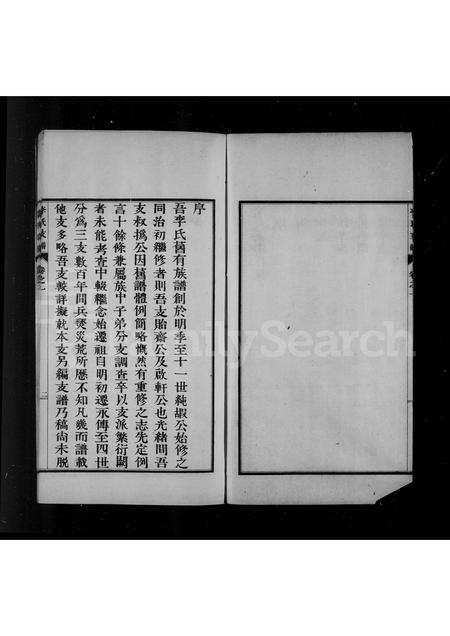 序
吾李氏舊有族譜創於明季至十一世純嘏公始修之
同治初繼修者則吾支貽齋公及啟軒公也光緒間吾
支叔撝公因舊譜體例簡略慨然有重修之志先定例
言十餘條兼屬族中子弟分支調查卒以支派繁衍闕
者未能考查中輟繼念始遷祖自明初遷永傳至四世
分爲三支數百年間兵燹災荒所厯不知凡幾而譜載
他支多略吾支較詳擬就本支另編支譜乃稿尙未脫
李氏支譜
卷之一
FamilySearch